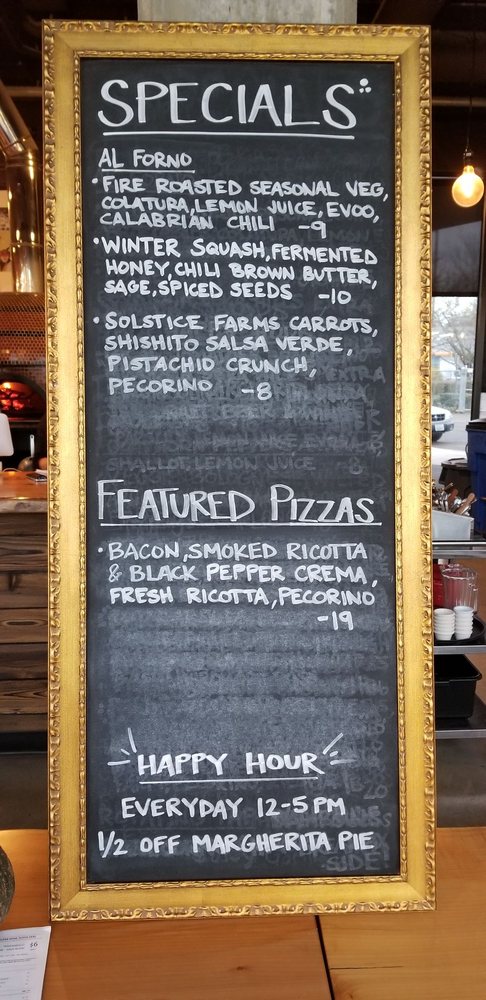 SPECIALS
AL FORNO
• FIRE ROASTED SEASONAL VEG,
COLATURA, LEMON JUICE, EVOO,
CALABRIAN CHILI -9
• WINTER SQUASH, FERMENTED
HONEY, CHILI BROWN BUTTER,
SAGE, SPICED SEEDS -10
• SOLSTICE FARMS CARROTS,
SHISHITO SALSA VERDE,
PISTACHIO CRUNCH,
PECORINO -8
SHALLOT LEMON JUICE 8
FEATURED PIZZAS
• BACON, SMOKED RICOTTA
& BLACK PEPPER CREMA,
FRESH RICOTTA, PECORINO
-19
HAPPY HOUR
EVERYDAY 12-5 PM
1/2 OFF MARGHERITA PIE
SIDE
$6